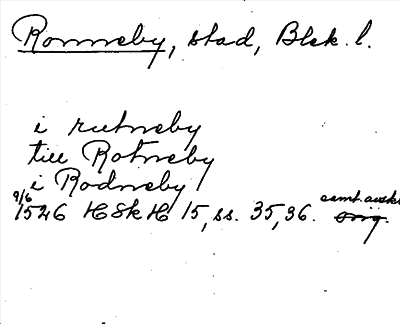 Ronneby, stad, Blek. l.
i rutneby
till Rotneby
i Rodneby
9/6 samt. avskr.
1526 HSkH 15, ss. 35, 36. orig.